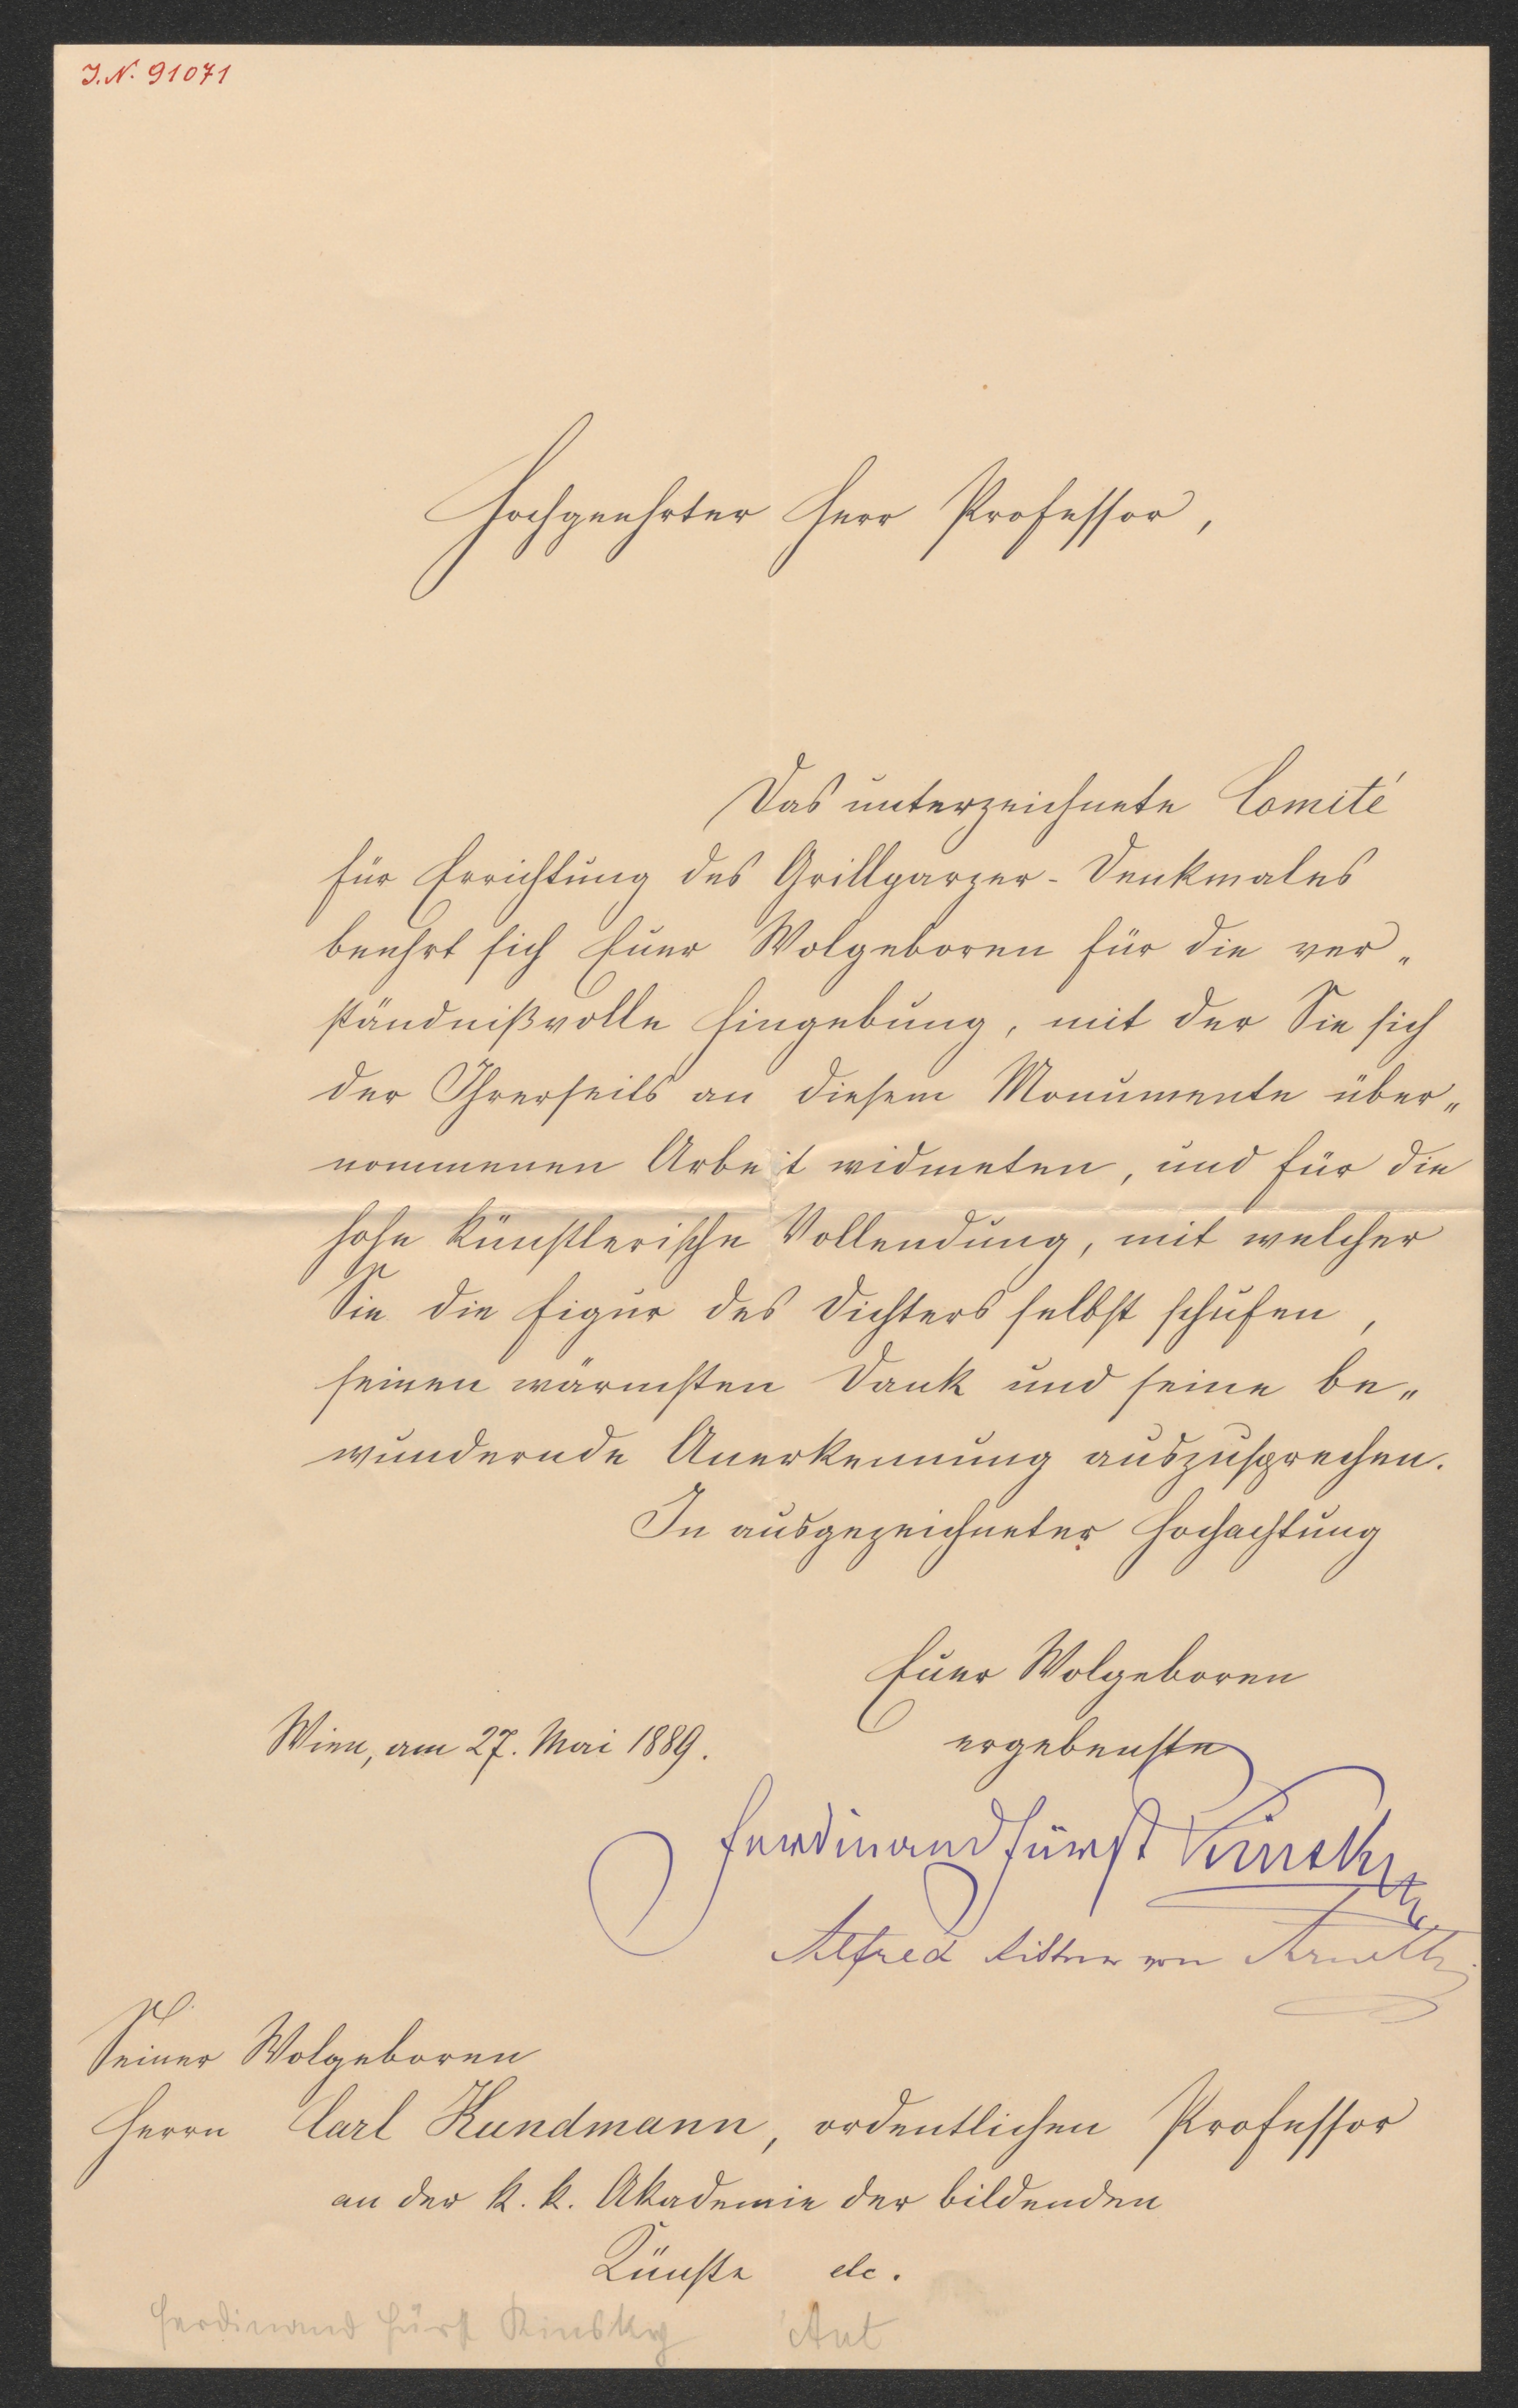 I.N. 91071
Hochgeehrter Herr Professor,
Das unterzeichnete Comité
für Errichtung des Grillparzer-Denkmales
beehrt sich Euer Wolgeboren für die ver„
ständnißvolle Hingebung, mit der Sie sich
der Ihrerseits an diesem Monumente über„
nommenen Arbeit widmeten, und für die
hohe künstlerische Vollendung, mit welcher
Sie die Figur des Dichters selbst schufen,
seinen wärmsten Dank und seine be„
wundernde Anerkennung auszusprechen.
In ausgezeichneter Hochachtung
Euer Wolgeboren
ergebenste
Wien, am 27. Mai 1889.
Ferdinand Fürst Kinsky
Alfred Ritter von Arneth
Seiner Wolgeboren
Herrn Carl Kundmann, ordentlichen Professor
an der k. k. Akademie der bildenden
Künste etc.
Ferdinand Fürst Kinsky Aut